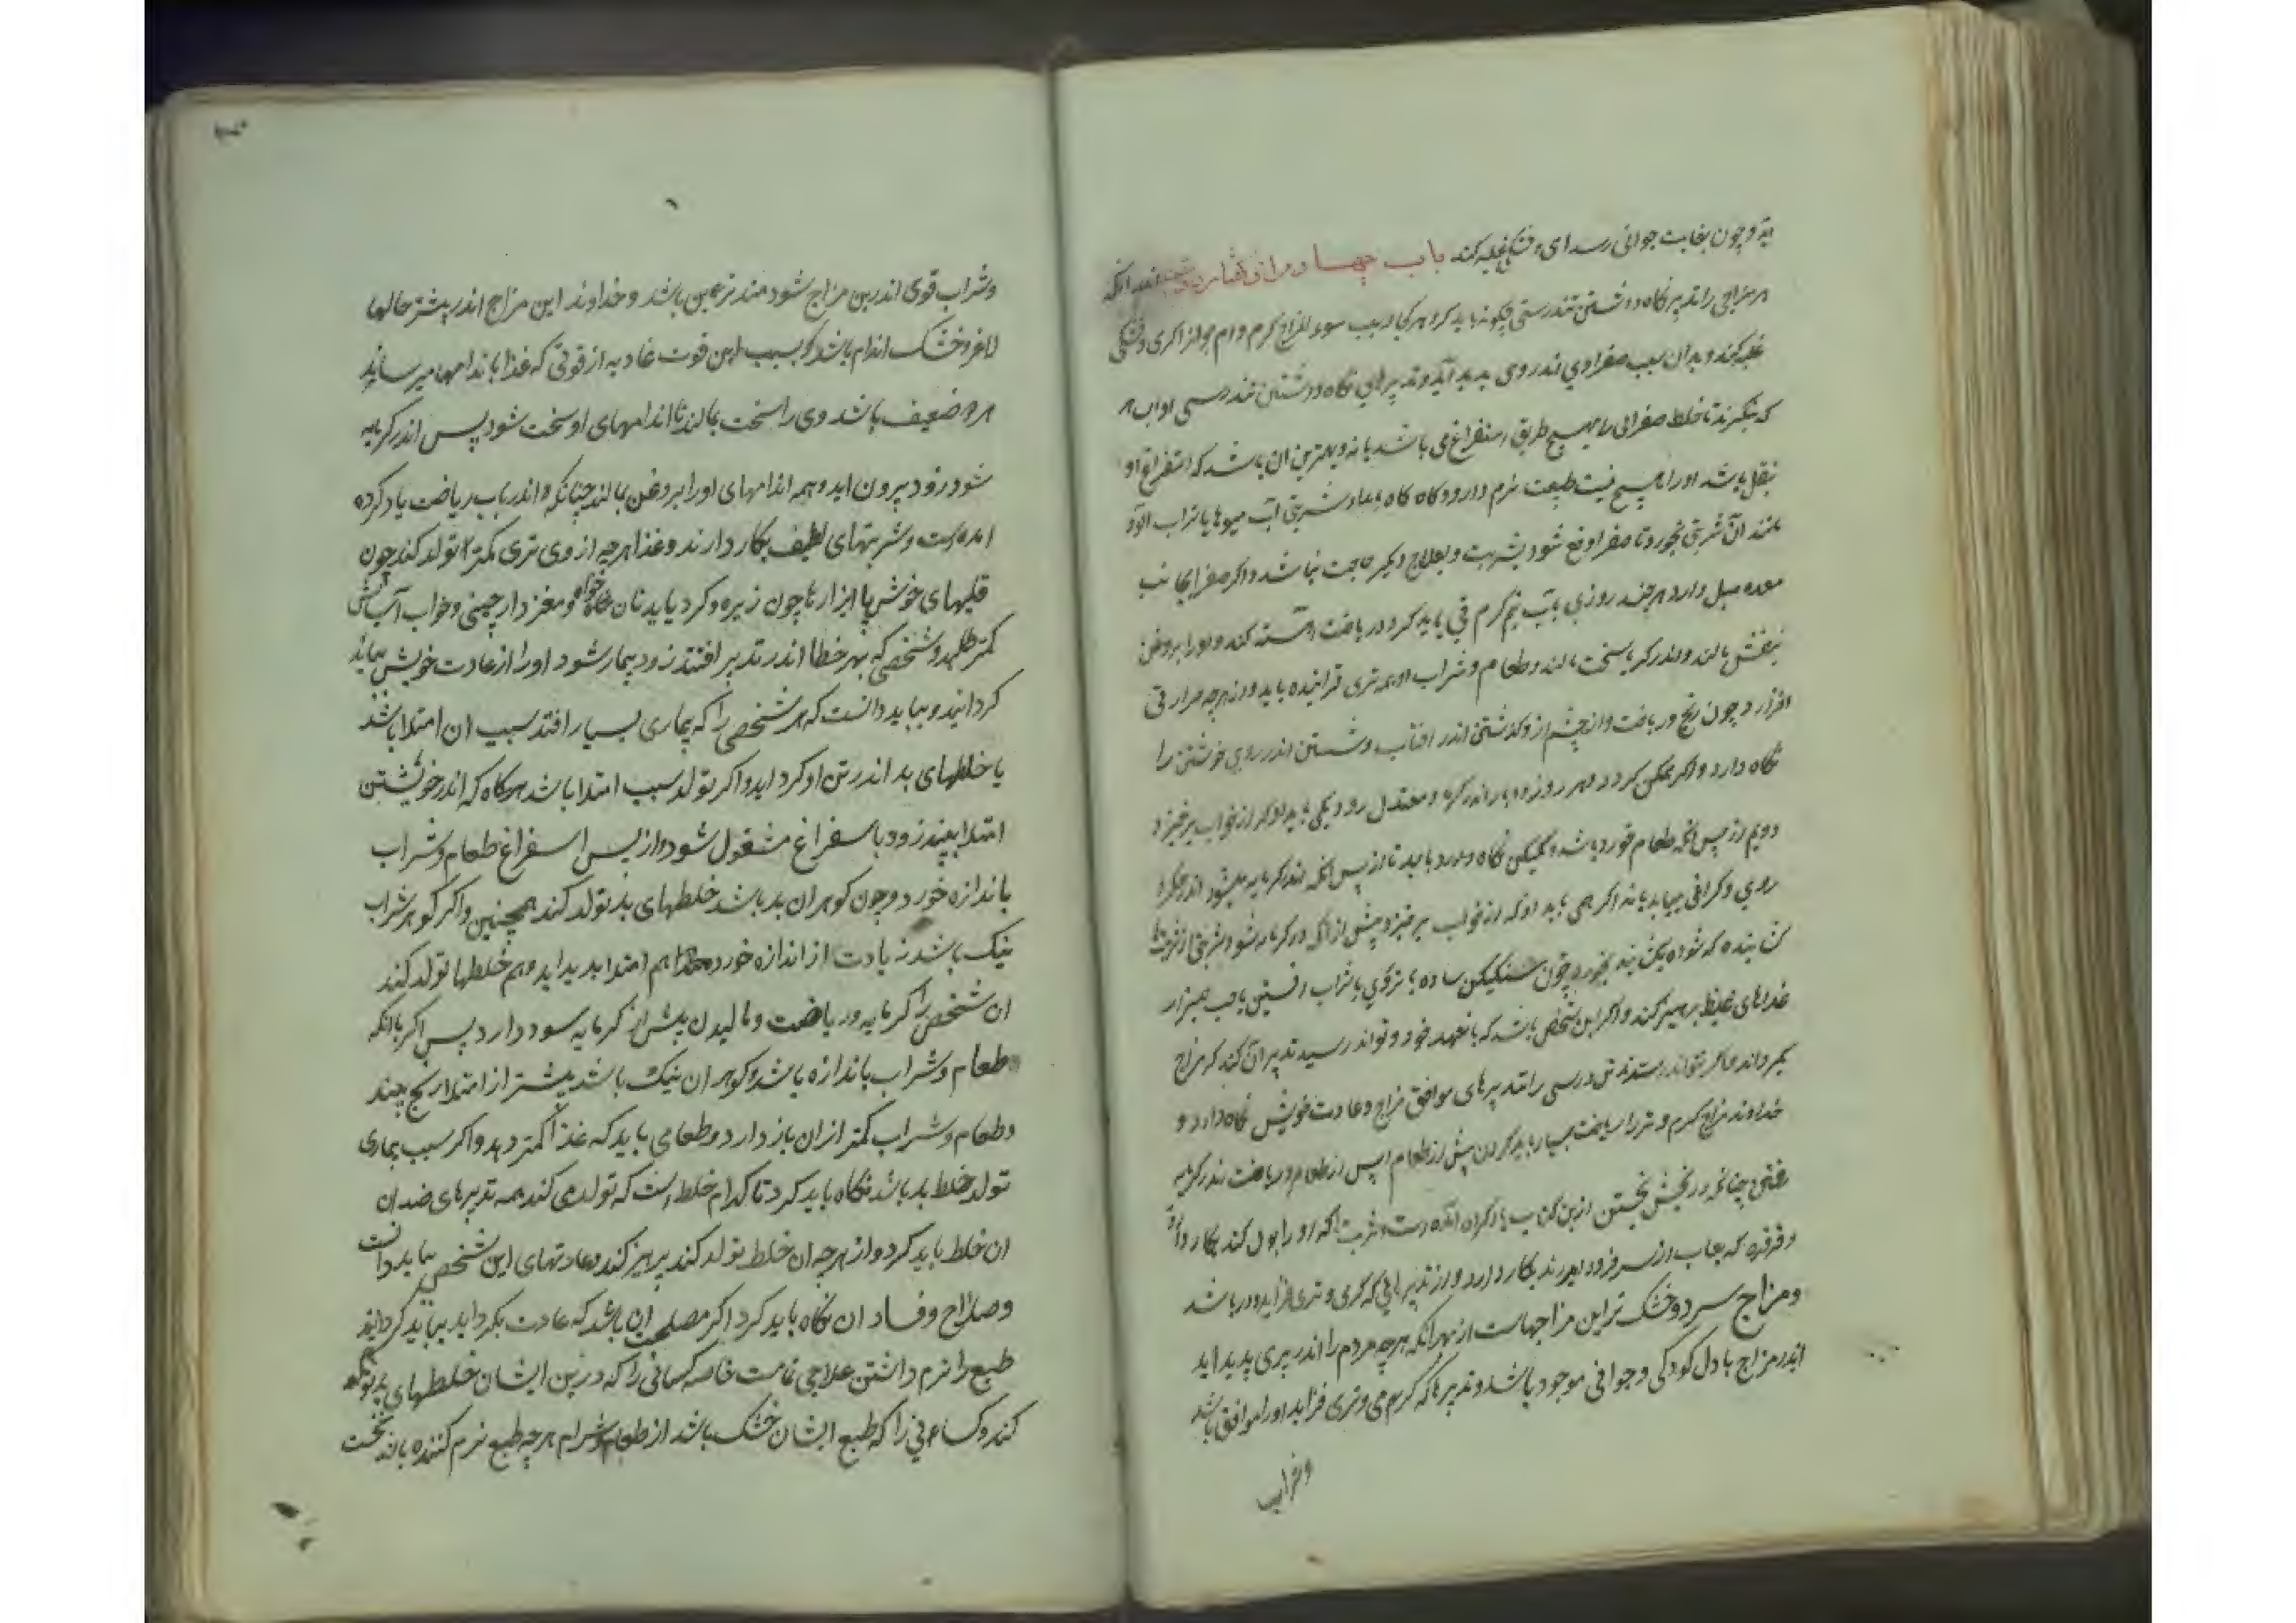 یه و چون بغایت جوانی رسد ای خشکی غلبه کند باب چهارم از گفتار اندر آنکه
هر مزاجی را تدبیر نگاه داشتن تندرستی چگونه باید کرد هر کرا بسبب سوء المزاج کرم و گرمی و خشکی
غلبه کند و بدان سبب صفرا اندر وی پدید آید و تدبیرهای نگاه داشتن تندرستی
که بنگرند تا خلط صفرائی را هیچ طریق استفراغ می باشد یا نه و بهترین آن باشد که استفراغ او
بنقل باشد او را هیچ نیست طبیعت نرم دارد و گاه گاه بامداد شربتی آب میوها یا شراب آلو
مانند آن شربتی بخورد تا صفرا دفع شود و بعلاج دیگر حاجت نباشد و اگر صفرا بجانب
معده میل دارد هر چند روزی بآب نیم کرم قی باید کرد و ریاضت آهسته کند و او را بروغن
بنفش بمالند و اندر کرمابه سخت نمالند و طعام و شراب او همه تری فزاینده باید و از هرچه حرارتی
افزاید چون رنج و ریاضت و از خشم و گذشتن اندر آفتاب و نشستن اندر خویشتن را
نگاه دارد و اگر ممکن گردد هر روز دو بار اندر کرمابه معتدل رود یکی بامداد که از خواب برخیزد
دویم از پس آنکه طعام خورد باشد و لیکن نگاه دارد باید تا از پس آنکه اندر کرمابه میشود اندر جگر
وی گرانی بیاید یا نه اگر همی یابد او که از خواب برخیزد پیش از آنکه در کرمابه شود شربتی از
بخورد چون سکنگبین ساده یا بزوری یا شراب افسنتین
غذاهای غلیظ پرهیز کند و اگر این شخص باشد که بتعهد خود تواند رسید تدبیر آن کند که مزاج
بگرداند و اگر نتواند تندرستی را تدبیرهای موافق مزاج و عادت خویش نگاه دارد و
خداوند مزاج کرم و تر را ریاضت بسیار باید کردن پیش از طعام و پس از طعام و ریاضت اندر کرمابه
رفتن چنانکه در بخش نخستین ازین کتاب یاد کرده آمده است و شربتها که ادرار بول کند بکار دارد
و غرغره که لعاب از سر فرود آورند بکار دارد و از تدبیرهائی که گرمی و تری فزاید دور باشد
و مزاج سرد و خشک تر این مزاجهاست از بهر آنکه هرچه مردم را اندر پیری پدید آید
اندر مزاج با دل کودکی و جوانی موجود باشد و تدبیرها که گرمی و تری فزاید او را موافق باشد
و شراب
و شراب قوی اندرین مزاج شود مند ترین باشد و خداوند این مزاج اندر بیشتر حالها
لاغر و خشک اندام باشد که بسبب این قوت غاذیه از قوتی که غذا باندامها میرساند
هر دو ضعیف باشد وی را سخت بمالند تا اندامهای او سخت شود پس اندر کرمابه
شود زود بیرون آید و همه اندامهای او را بروغن بمالند چنانکه اندر باب ریاضت یاد کرده
آمده است و شربتهای لطیف بکار دارند و غذا هرچه از وی تری کمتر تولد کند چون
قلیهای خوش با ابزارها چون زیره و کرویا و نان خواه و مغز دار چینی و خواب
کمتر طلبد و شخصی که بهر خطا اندر تدبیر افتد زود بیمار شود او را از عادت خویش بباید
کردانید و بباید دانست که هر شخصی را که بیماری بسیار افتد سبب آن امتلا باشد
یا خلطهای بد اندر تن او گرد اید و اگر تولد سبب امتلا باشد هر گاه که اندر خویشتن
امتلا بیند زود باسفراغ مشغول شود و از پس اسفراغ طعام و شراب
باندازه خورد و چون گوهر آن بد باشد خلطهای بد تولد کند همچنین و اگر گوهر شراب
نیک باشد زیادت از اندازه خورد هم امتلا پدید اید و هم خلطها تولد کند
ان شخص را کرمابه و ریاضت و مالیدن پیش از کرمابه سود دارد پس اگر با آنکه
طعام و شراب باندازه باشد و گوهر ان نیک باشد بیشتر از امتلا رنج بیند
و طعام و شراب کمتر ازان باز دارد و طعامی باید که غذا کمتر دهد و اگر سبب بیماری
تولد خلط بد باشد نگاه باید کرد تا کدام خلط است که تولد می کند همه تدبیرهای ضد ان
ان خلط باید کرد و از هرچه ان خلط تولد کند پرهیز کند و عادتهای این شخص بباید دانست
و صلاح و فساد ان نگاه باید کرد اگر مصلحت ان باشد که عادت بگرداند بباید کردانید
طبع را نرم داشتن علاجی تمامت خاصه کسانی را که در تن ایشان خلطهای بد تولد
کند و کسانی را که طبع ایشان خشک باشد از طعام و شراب هرچه طبع نرم کننده باشد نخست